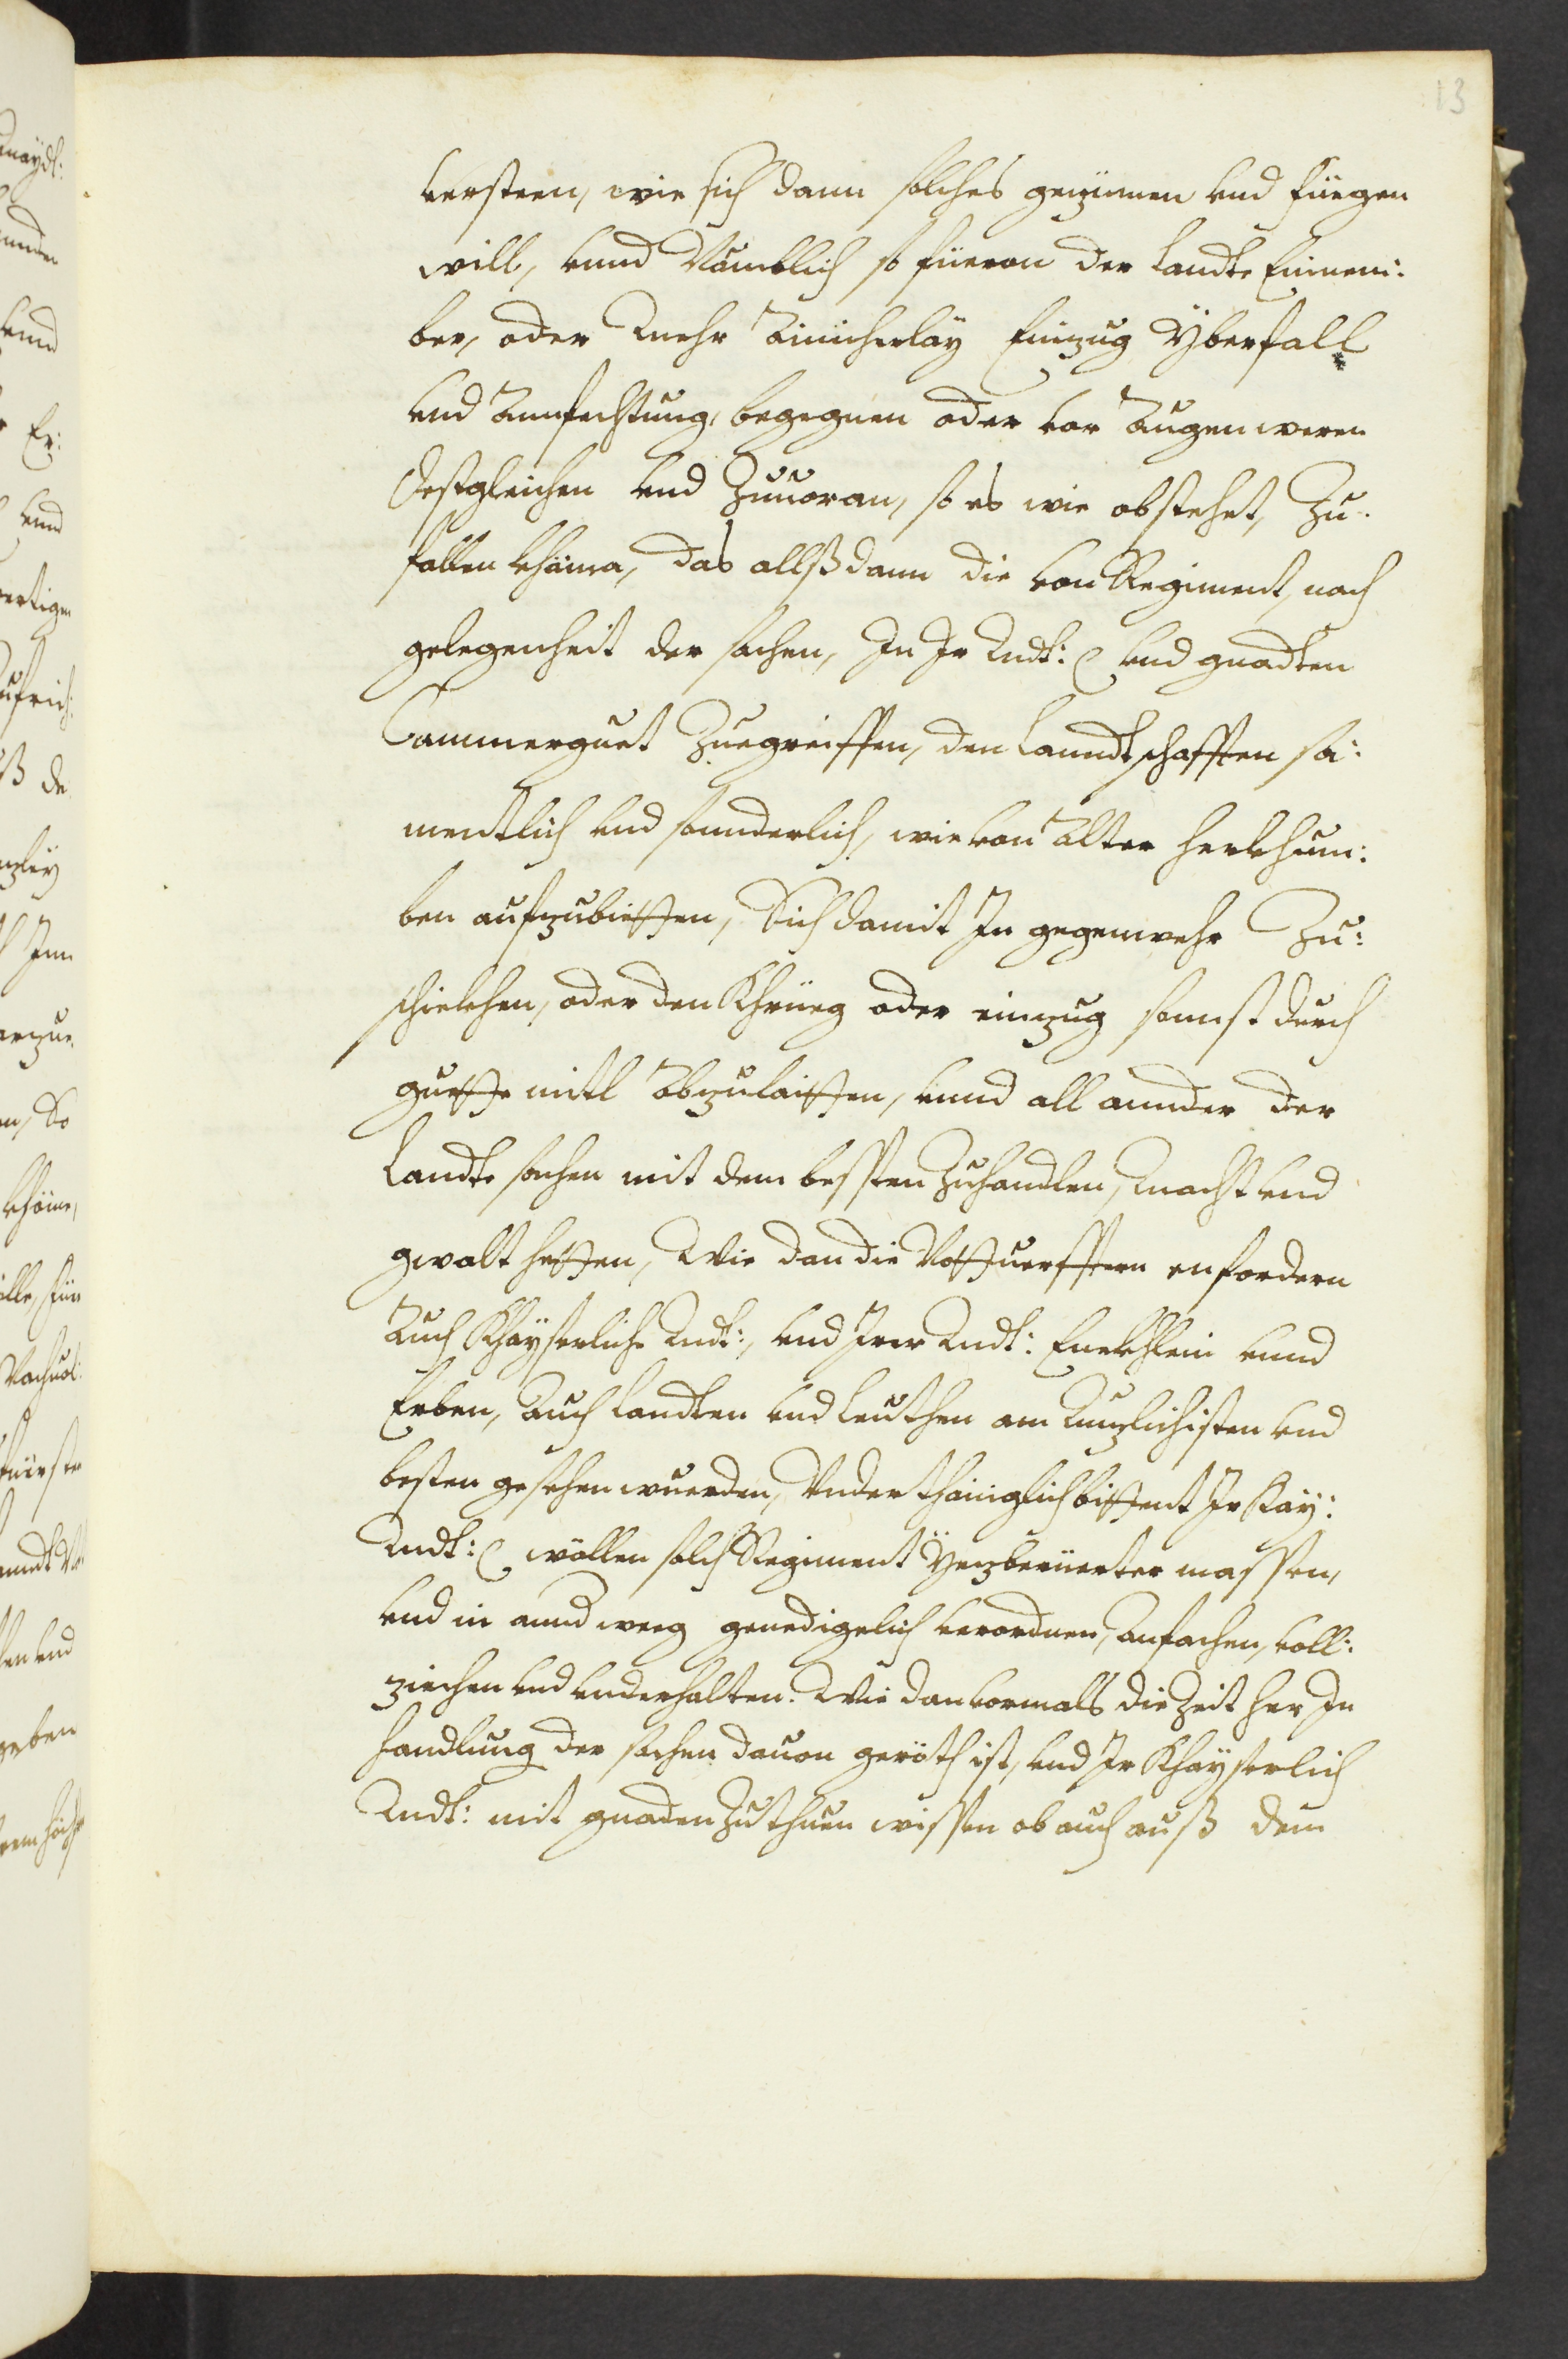 13
versteen, wie sich dann solches gezümen vnd füegen
will, vnnd Nämblich so füeran der Landte Einem:
ber, oder Mehr Ainicherlay Einzug Yberfall
vnd Annfechtung, begegnen oder vor Augen weren
Desßgleichen vnd Zuuoran, so es wie obstehet, Zu:
fallen khäme, das allßdann die von Regiment, nach
gelegenheit der sachen, In Ir Mdt: vnd gnadten
Cammerguet Zuegreiffen, den Lanndtschafften sa:
mentlich vnd sonnderlich, wie von Alter herkhum:
ben aufzubietten, Sich damit In gegenwehr Zu:
schickhen, oder den Khrüeg oder einzug sonnst durch
guette mitl Abzulaitten, vnnd all annder der
Landte sachen mit dem bessten Zuhandlen, Macht vnd
gwalt hetten, Wie dan die Notturfften erfordern
Auch Khayserliche Mdt:, vnd Irer Mdt: Enickhlein vnnd
Erben, Auch Landten vnd Leuthen am Nuzlichisten vnd
besten gesehen wuerden, Vnderthäniglich bittent Ir Kay:
Mdt: wöllen solch Regiment Yezberüerter massen,
vnd in annd weeg genedigelich verordnen, Anfachen, voll:
ziechen vnd vnderhalten. Wie dan vormalls die Zeit her In
handlung der sachen dauon geröth ist, vnd Ir Khayserlich
Mdt: mit gnaden Zuthuen wissen ob auch auß dem